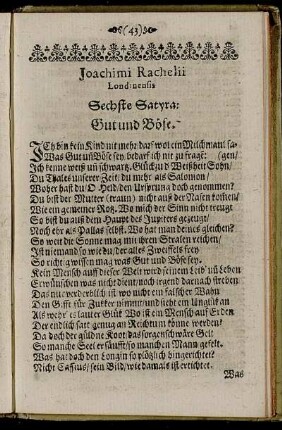 (43)
Joachimi Rachelii
Londinensis
Sechste Satyra:
Gut und Böse.
ICh bin kein Kind mehr darf wol ein Milchmaul sa-
Was Gut uñ Böse sey, bedarf ich nie zu fragẽ: (gen/
Ich kenne weiß uñ schwartz. Glück zu! Weißheit Sohn/
Du Thales unserer Zeit/ du mehr als Salomon/
Woher hast du/ O Held/ den Ursprung doch genommen?
Du bist der Mutter (traun) nicht auß der Nasen
Wie ein gemeiner Rotz. Wo mich der Sinn nicht treugt
So bist du auß dem Haupt des Jupiters gezeugt/
Noch eher als Pallas selbst. Wo hat man deines gleichen?
So weit die Sonne mag mit ihren Stralen reichen/
Ist niemand so wie du/ der alles Zweiffels frey
So richtig wissen mag was Gut und Böse sey.
Kein Mensch auff dieser Welt wird seinem Leid uñ Leben
Erwünschen was nicht dient/ noch irgend darnach streben
Das nur verderblich ist wo nicht ein falscher Wahn
Den Gifft für Zucker nimmt und sieht den Unglük an
Als wehr es lauter Glük Wo ist ein Mensch auf Erden
Der endlich satt genug an Reichtum könne werden?
Da doch der güldne Koot/ das sorgenschwäre Gelt
So manche Seel ersäufft/ so manchen Mann gefelt.
Was hat doch den Longin so plötzlich hingerichtet?
Nicht Cassius/ sein Bild/ wie damals ist ertichtet.
Was